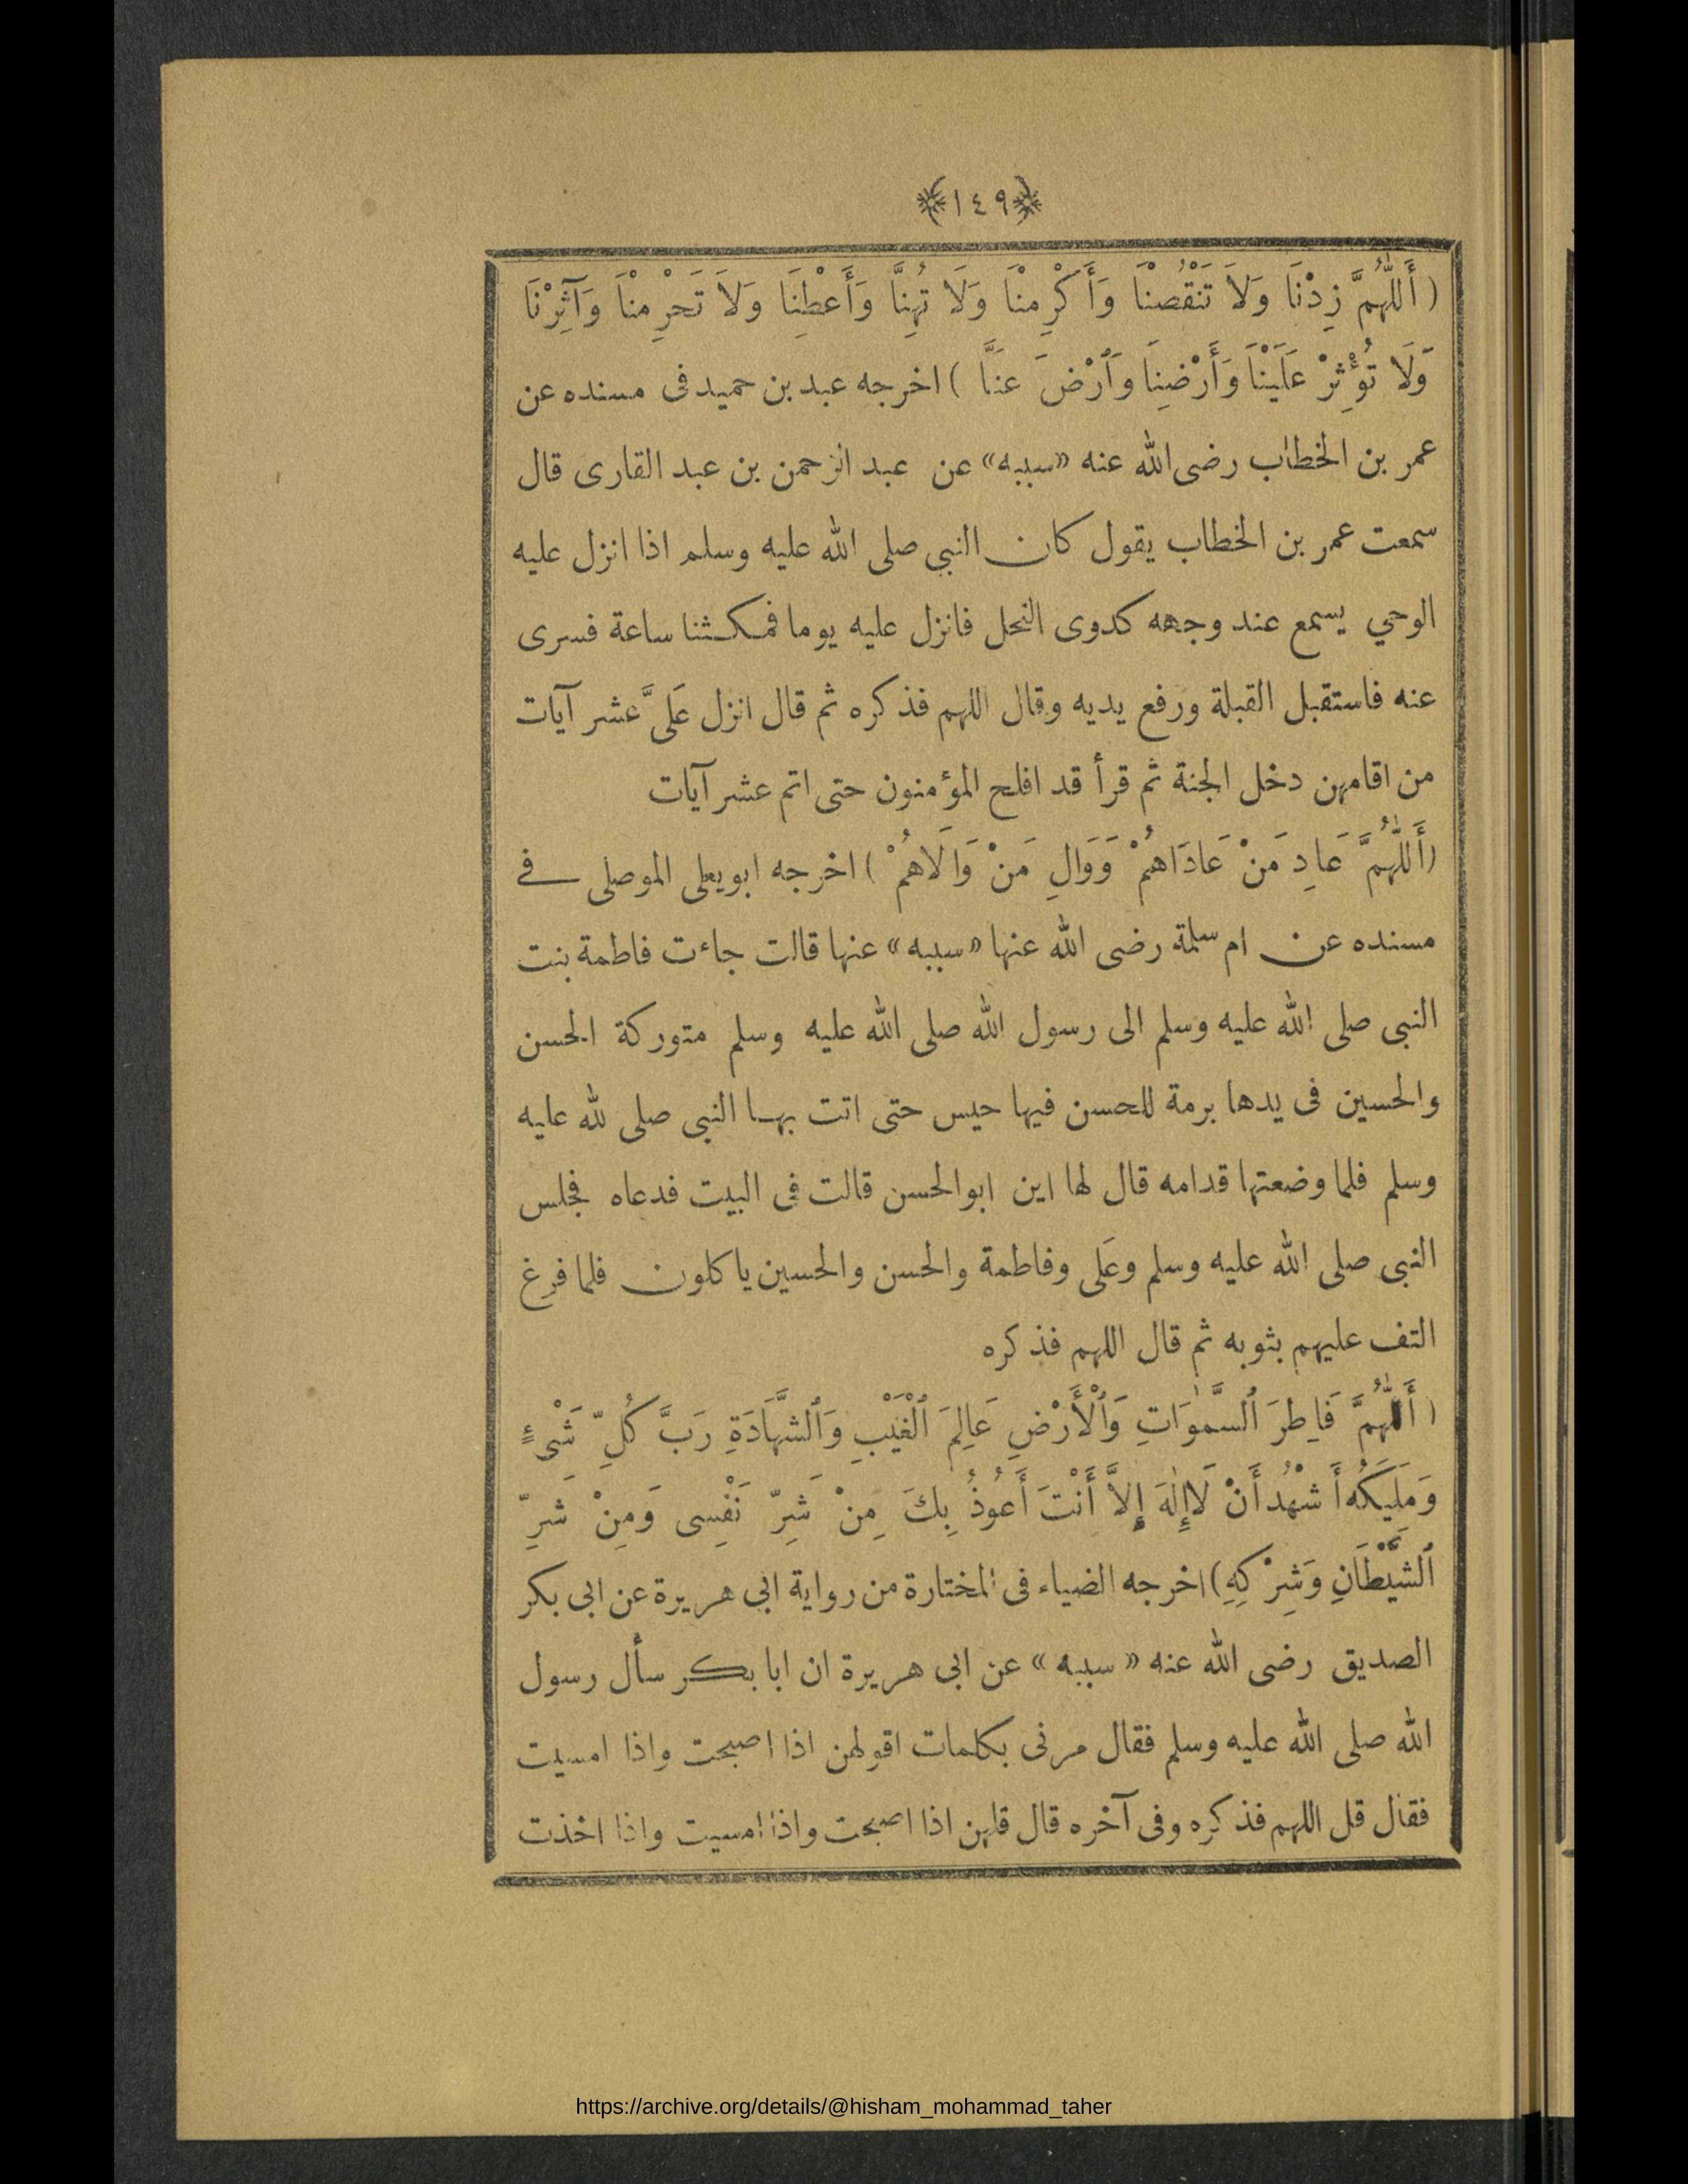 ﴿١٤٩﴾
(أَللّٰهُمَّ زِدْنَا وَلَا تَنْقُصْنَا وَأَكْرِمْنَا وَلَا تُهِنَّا وَأَعْطِنَا وَلَا تَحْرِمْنَا وَآثِرْنَا
وَلَا تُؤْثِرْ عَلَيْنَا وَأَرْضِنَا وَٱرْضَ عَنَّا) اخرجه عبد بن حميد فى مسنده عن
عمر بن الخطاب رضى الله عنه «سببه» عن عبد الرحمن بن عبد القارى قال
سمعت عمر بن الخطاب يقول كان النبى صلى الله عليه وسلم اذا انزل عليه
الوحي يسمع عند وجهه كدوى النحل فانزل عليه يوما فمكثنا ساعة فسرى
عنه فاستقبل القبلة ورفع يديه وقال اللهم فذكره ثم قال انزل عَلَىَّ عشر آيات
من اقامهن دخل الجنة ثم قرأ قد افلح المؤمنون حتى اتم عشر آيات
(أَللّٰهُمَّ عَادِ مَنْ عَادَاهُمْ وَوَالِ مَنْ وَالَاهُمْ) اخرجه ابويعلى الموصلى فے
مسنده عن ام سلمة رضى الله عنها «سببه» عنها قالت جاءت فاطمة بنت
النبى صلى الله عليه وسلم الى رسول الله صلى الله عليه وسلم متوركة الحسن
والحسين فى يدها برمة للحسن فيها حيس حتى اتت بها النبى صلى لله عليه
وسلم فلما وضعتها قدامه قال لها اين ابوالحسن قالت فى البيت فدعاه فجلس
النبى صلى الله عليه وسلم وعَلى وفاطمة والحسن والحسين ياكلون فلما فرغ
التف عليهم بثوبه ثم قال اللهم فذكره
(أَللّٰهُمَّ فَاطِرَ ٱلسَّمٰوَاتِ وَٱلْأَرْضِ عَالِمَ ٱلْغَيْبِ وَٱلشَّهَادَةِ رَبَّ كُلِّ شَىْءٍ
وَمَلِيكَهُ أَشْهُدُ أَنْ لَاإِلٰهَ إِلاَّ أَنْتَ أَعُوذُ بِكَ مِنْ شَرِّ نَفْسِى وَمِنْ شَرِّ
ٱلشَّيْطَانِ وَشِرْكِهِ) اخرجه الضياء فى المختارة من رواية ابى هريرة عن ابى بكر
الصديق رضى الله عنه «سببه» عن ابى هريرة ان ابا بكر سأل رسول
الله صلى الله عليه وسلم فقال مرنى بكلمات اقولهن اذا اصبحت واذا امسيت
فقال قل اللهم فذكره وفى آخره قال قلهن اذا اصبحت واذا امسيت واذا اخذت
https://archive.org/details/@hisham_mohammad_taher